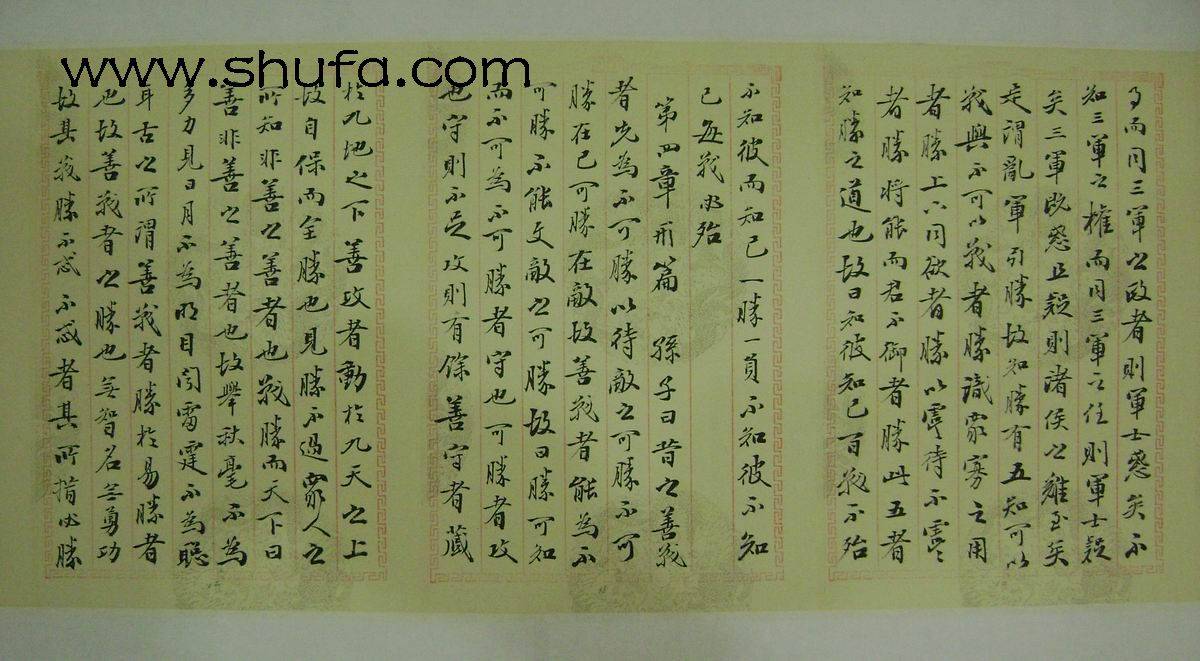 www.shufa.com
事而同三軍之政者則軍士惑矣不
知三軍之權而同三軍之任則軍士疑
矣三軍既惑且疑則諸侯之難至矣
是謂亂軍引勝故知勝有五知可以
戰與不可以戰者勝識眾寡之用
者勝上下同欲者勝以虞待不虞
者勝將能而君不御者勝此五者
知勝之道也故曰知彼知己百戰不殆
不知彼而知己一勝一負不知彼不知
己每戰必殆
第四章形篇 孫子曰昔之善戰
者先為不可勝以待敵之可勝不可
勝在己可勝在敵故善戰者能為不
可勝不能使敵之可勝故曰勝可知
而不可為不可勝者守也可勝者攻
也守則不足攻則有餘善守者藏
於九地之下善攻者動於九天之上
故自保而全勝也見勝不過眾人之
所知非善之善者也戰勝而天下曰
善非善之善者也故舉秋毫不為
多力見日月不為明目聞雷霆不為聰
耳古之所謂善戰者勝於易勝者
也故善戰者之勝也無智名無勇功
故其戰勝不忒不忒者其所措必勝